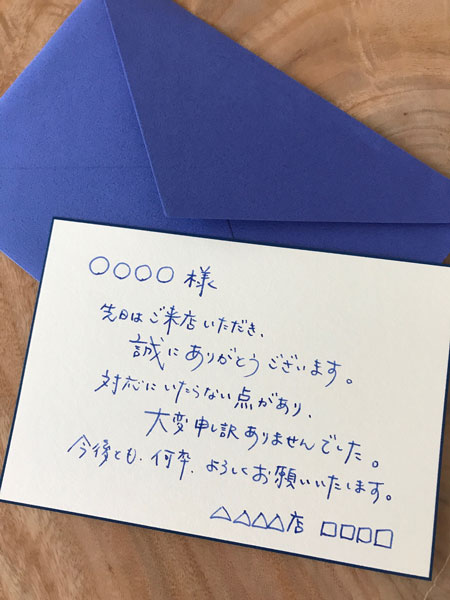 ○○○○ 様
先日はご来店いただき、
誠にありがとうございます。
対応にいたらない点があり、
大変申し訳ありませんでした。
今後とも、何卒、よろしくお願いいたします。
△△△△店 □□□□